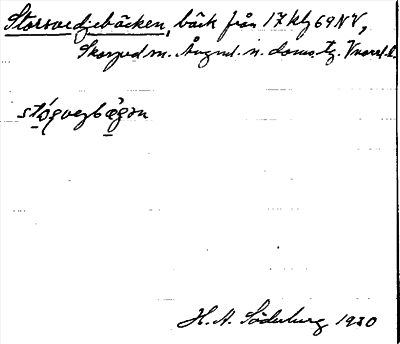 Storsvedjebäcken, bäck från 17 klj 69 NV,
Skorped sn. Ångml. n. doms. tg. Vnorrl. l.
stógvezbägən
H. A. Söderberg 1930